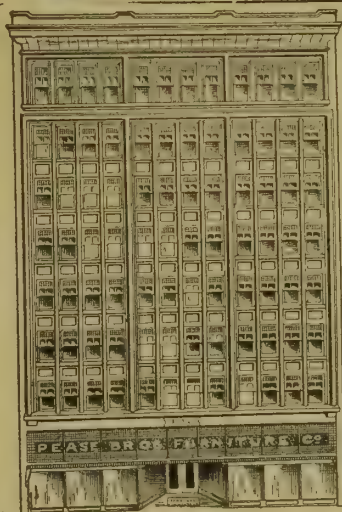 PEASE BROS. FURNITURE CO.